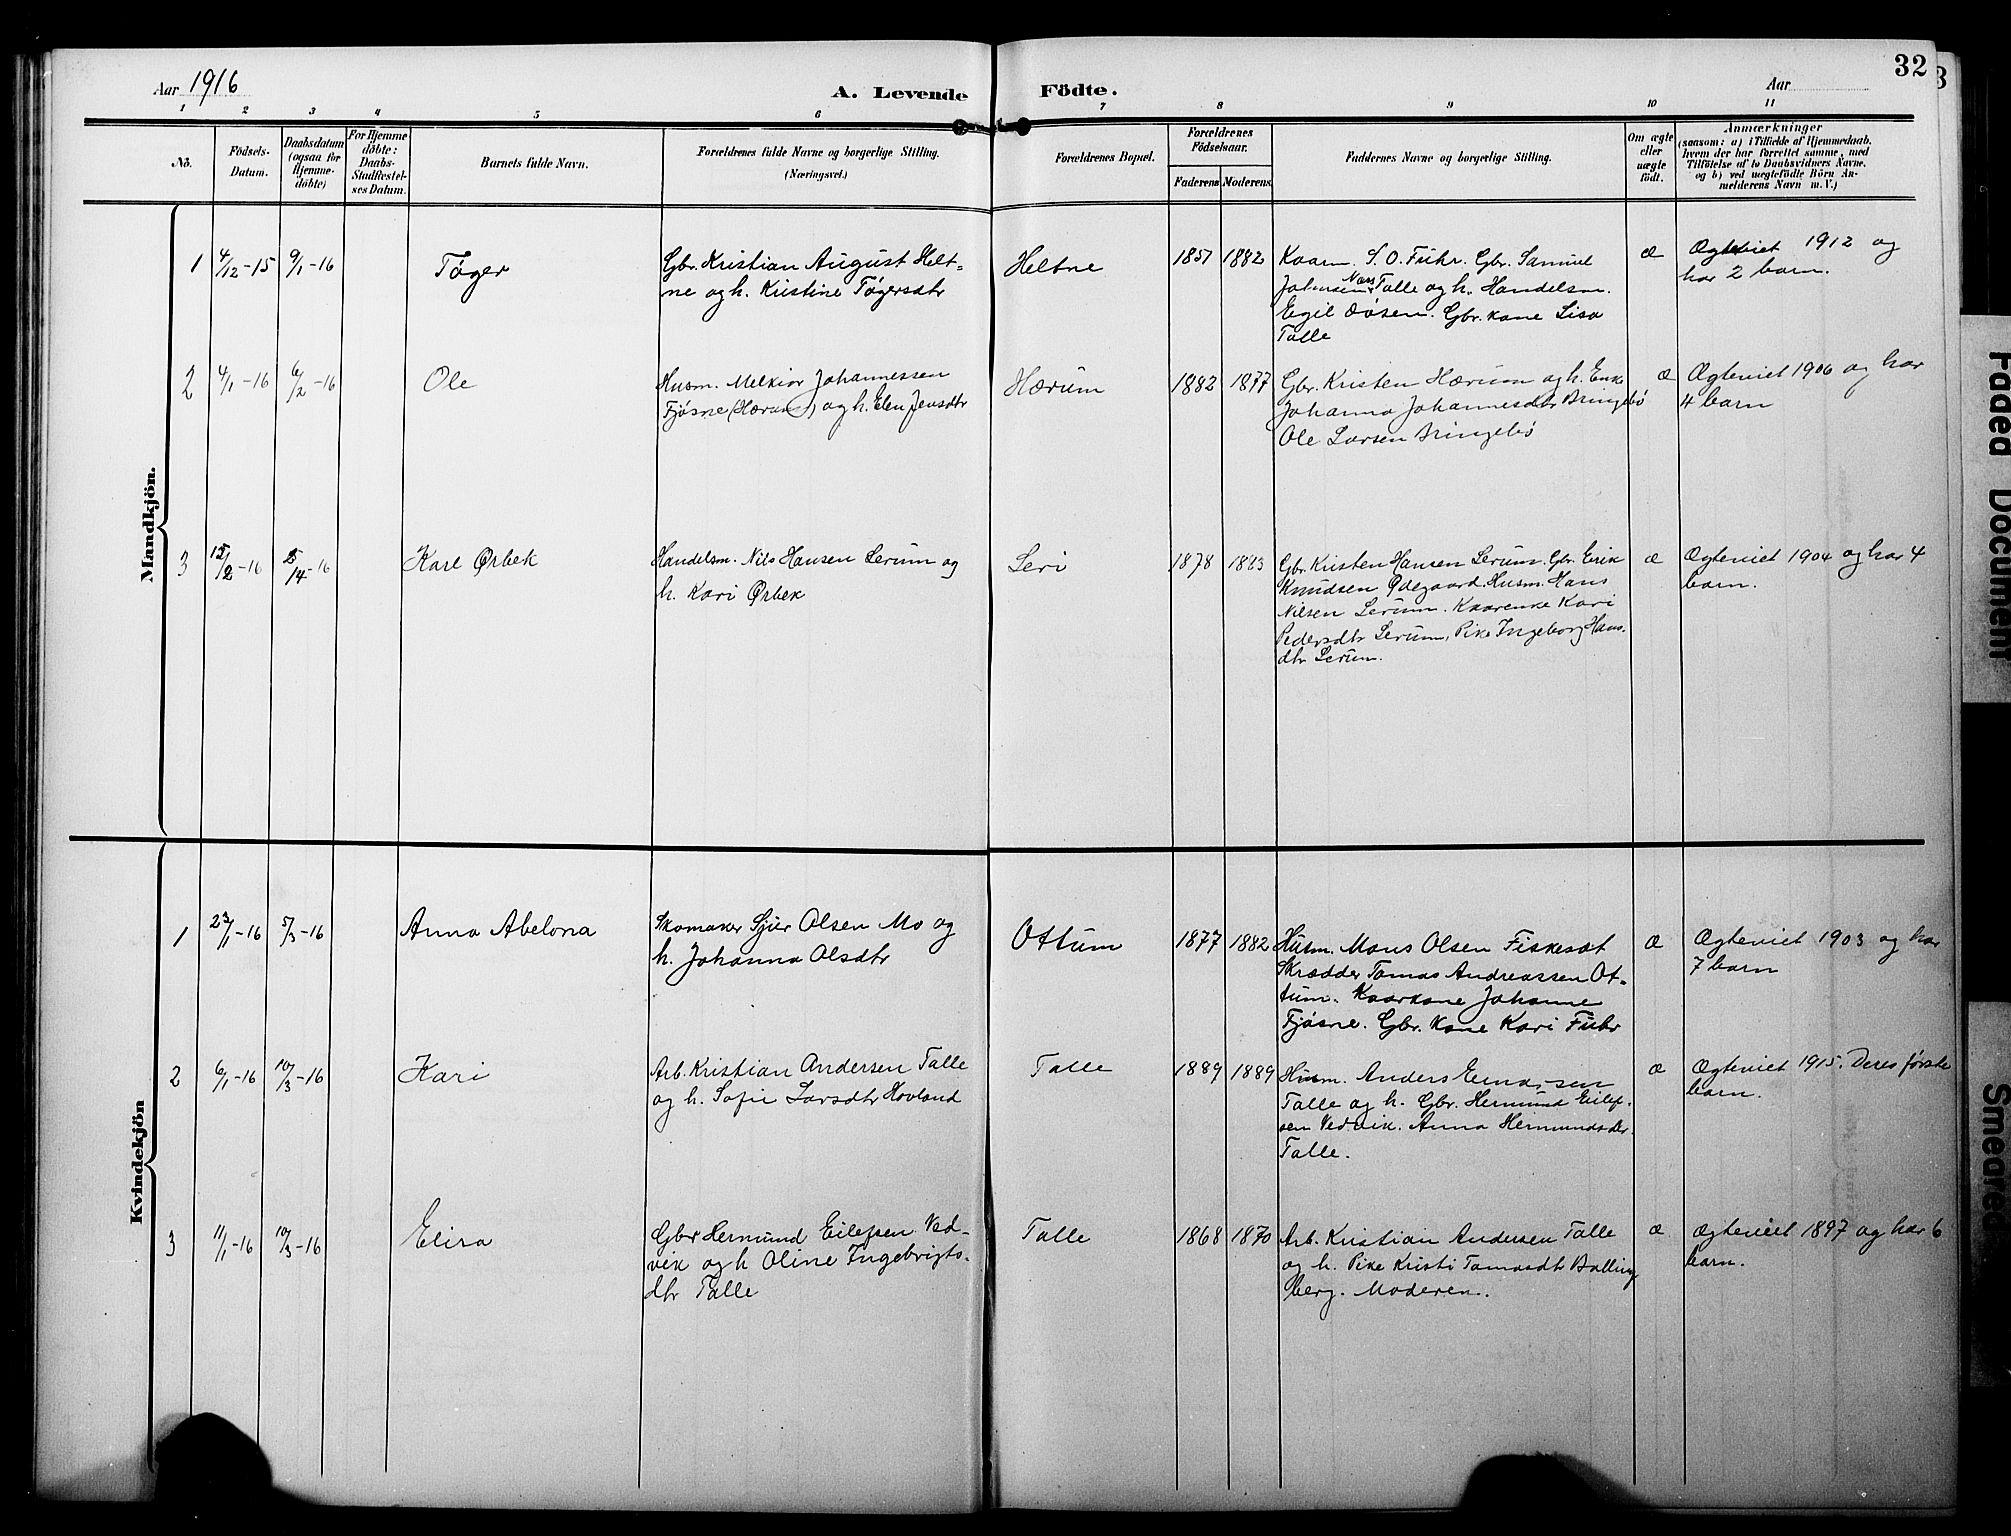 32
Aar 1916
A. Levende Födte.
Aar
1 2 3 4 5 6 7 8 9 10 11
No.
Födsels-
Datum.
Daabsdatum
(ogsaa for
Hjemme-
döbte)
For Hjemme
döbte:
Daabs-
Stadfestel-
ses Datum.
Barnets fulde Navn.
Forældrenes fulde Navne og borgerlige Stilling.
(Næringsvei.)
Forældrenes Bopæl.
Forældrenes
Födselsaar.
Faderens
Moderens.
Faddernes Navne og borgerlige Stilling.
Om ægte
eller
uægte
födt.
Anmærkninger
(saasom: a) i Tilfælde af Hjemmedaab,
hvem der har forrettet samme, med
Tilföielse af to Daabsvidners Navne,
og b) ved uægtefödte Börn An-
melderens Navn m. V.)
Mandkjön.
1
4/12-15
9/1-16
Tøger
Gbr. Kristian August Helt=
ne og h. Kristine Tøgersdtr
Heltne
1857
1882
Kaarm. S. O. Fuhr. Gbr. Samuel
Johnsen Næss Talle og h. Handelsm.
Eigil Døsen. Gbr. kone Lisa
Talle
æ
Ægteviet 1912 og
har 2 barn.
2
4/1-16
6/2-16
Ole
Husm. Melkior Johannessen
Fjøsne (Hærum) og h. Elen Jensdtr
Hærum
1882
1877
Gbr. Kristen Hærum og h. Enke
Johanna Johannesdtr Bringebø
Ole Larsen Bringebø
æ
Ægteviet 1906 og har
4 barn
3
15/2-16
/4-16
Karl Ørbek
Handelsm. Nils Hansen Lerum og
h. Kari Ørbek
Leri
1878
1883
Gbr. Kristen Hansen Lerum. Gbr. Eirik
Knudsen Ødegaard. Husm. Hans
Nilsen Lerum. Kaarenke Kari
Pedersdtr Lerum, Pike Ingeborg Hans.
dtr Lerum.
æ
Ægteviet 1904 og har 4
barn.
Kvindekjön
1
23/1-16
5/3-16
Anna Abelona
Skomaker Sjur Olsen Mo og
h. Johanna Olsdtr
Ottum
1877
1882
Husm. Mons Olsen Fiskesæt
Skrædder Tomas Andreassen Ot=
tum. Kaarkone Johanne
Fjøsne. Gbr. kone Kari Fuhr
æ
Ægteviet 1903 og har
7 barn
2
6/1-16
10/3-16
Kari
Arb. Kristian Andersen Talle
og h. Sofie Larsdtr Hovland
Talle
1889
1889
Husm. Anders Einarsen
Talle og h. Gbr. Hermund Eilef.
sen Vedvik. Anna Hermundsdtr.
Talle.
æ
Ægteviet 1915. Deres første
barn.
3
11/1-16
10/3-16
Elira
Gbr Hermund Eilefsen Ved-
vik og h Oline Ingebrigts-
dtr Talle
Talle
1868
1870
Arb. Kristian Andersen Talle
og h. Pike Kristi Tomasdtr Balling
berg. Moderen.
æ
Ægteviet 1897 og har 6
barn.
Faded Document
Smeared